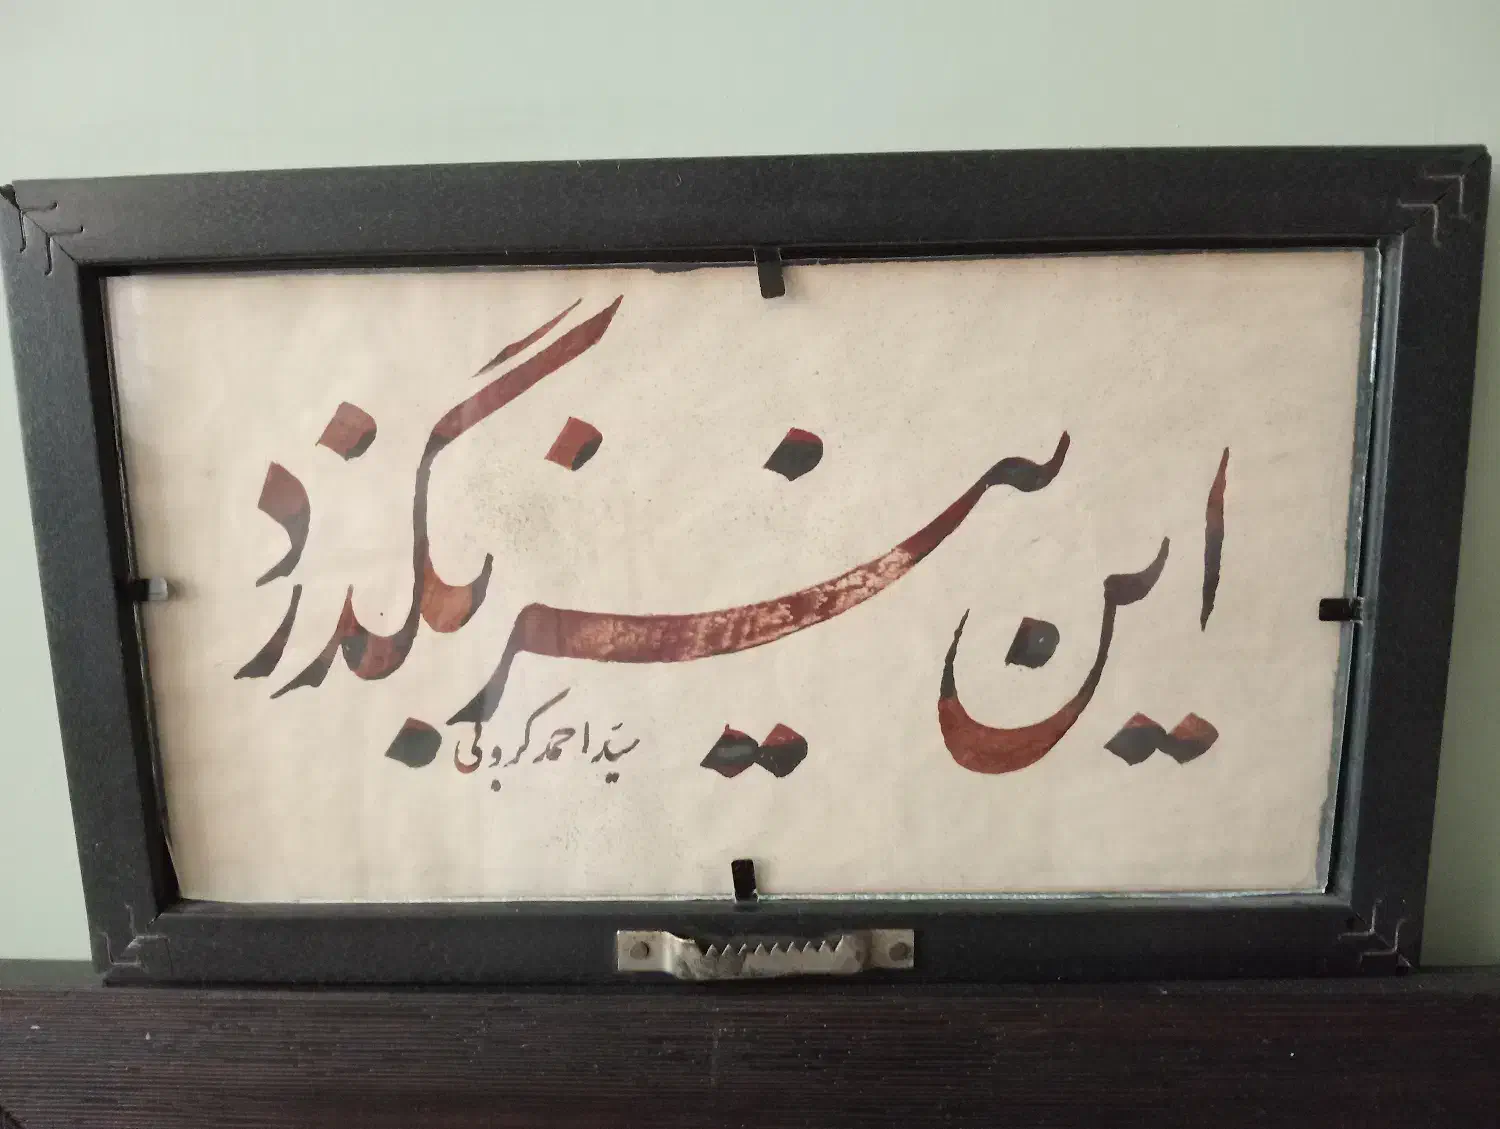 این نیز بگذرد
سیّد احمد کروبی